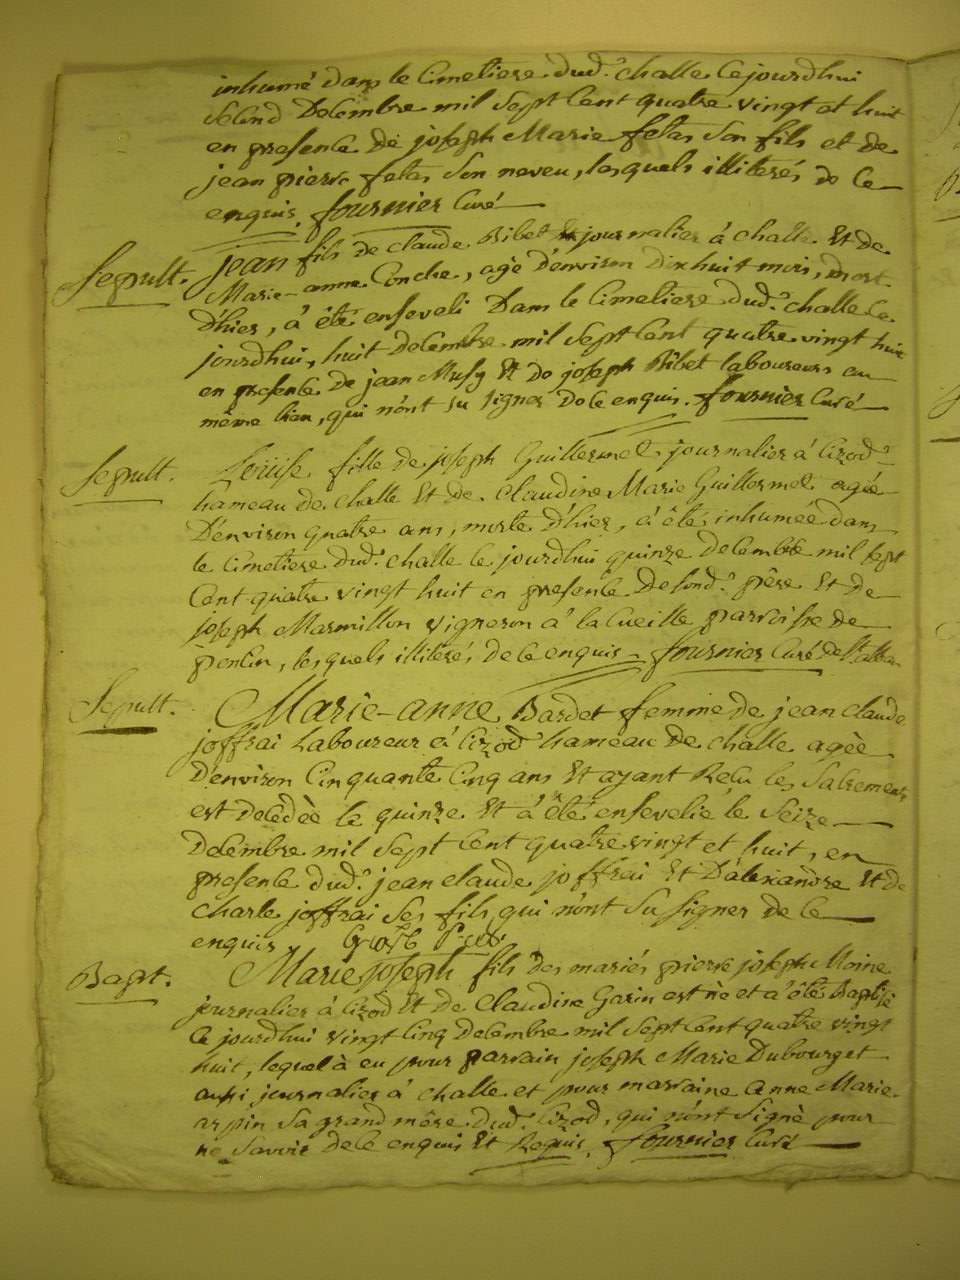 inhumé dans le Cimetiere dud.^t challe Cejourdhui
second Decembre mil sept Cent quatre vingt et huit
en presence de joseph Marie fetas son fils et de
jean pierre fetas son neveu, lesquels illiterés de Ce
enquis. fournier Curé
Sepult. jean fils de claude Bibet journalier à challe Et de
Marie-anne Conche, agé d'environ Dixhuit mois, mort
D'hier, à été enseveli Dans le Cimetiere dud.^t challe Ce
jourdhui, huit decembre mil sept Cent quatre vingt huit
en presence de jean Musy Et de joseph Bibet laboureurs au
même lieu, qui n'ont su signer De ce enquis. fournier Curé
Sepult. Loüise fille de joseph Guillermet journalier à Cizod
hameau de challe Et de Claudine Marie Guillermet agée
D'environ quatre ans, morte d'hier, à êté inhumée dans
le Cimetiere dud.^t challe Ce jourdhui quinze decembre mil sept
Cent quatre vingt huit en presence De sond.^t père Et de
joseph Marmillon vigneron à la Cueille parroisse de
poncin, lesquels illiterés de Ce enquis - fournier Curé de St. alban
Sepult. Marie-anne Bardet femme de jean claude
joffrai Laboureur à Cizod hameau De challe agèe
D'environ Cinquante Cinq ans Et ayant Recu les Sacrements
est decédèe le quinze Et à êté ensevelie le Seize
Decembre mil sept Cent quatre vingt et huit, en
presence dud.^t jean claude joffrai Et D'alexandre Et de
Charle joffrai ses fils, qui n'ont su signer de Ce
enquis.
Bapt. Marie joseph fils des mariés pierre joseph Moine
journalier à Cizod Et de Claudine Garin est né et a êté Baptisé
Ce jourdhui vingt Cinq decembre mil sept Cent quatre vingt
huit, lequel à eu pour parrain joseph Marie Dubourget
aussi journalier à challe et pour marraine anne Marie
arpin sa grand mère dud.^t Cizod, qui n'ont signé pour
ne savoir de Ce enquis Et Requis. fournier Curé